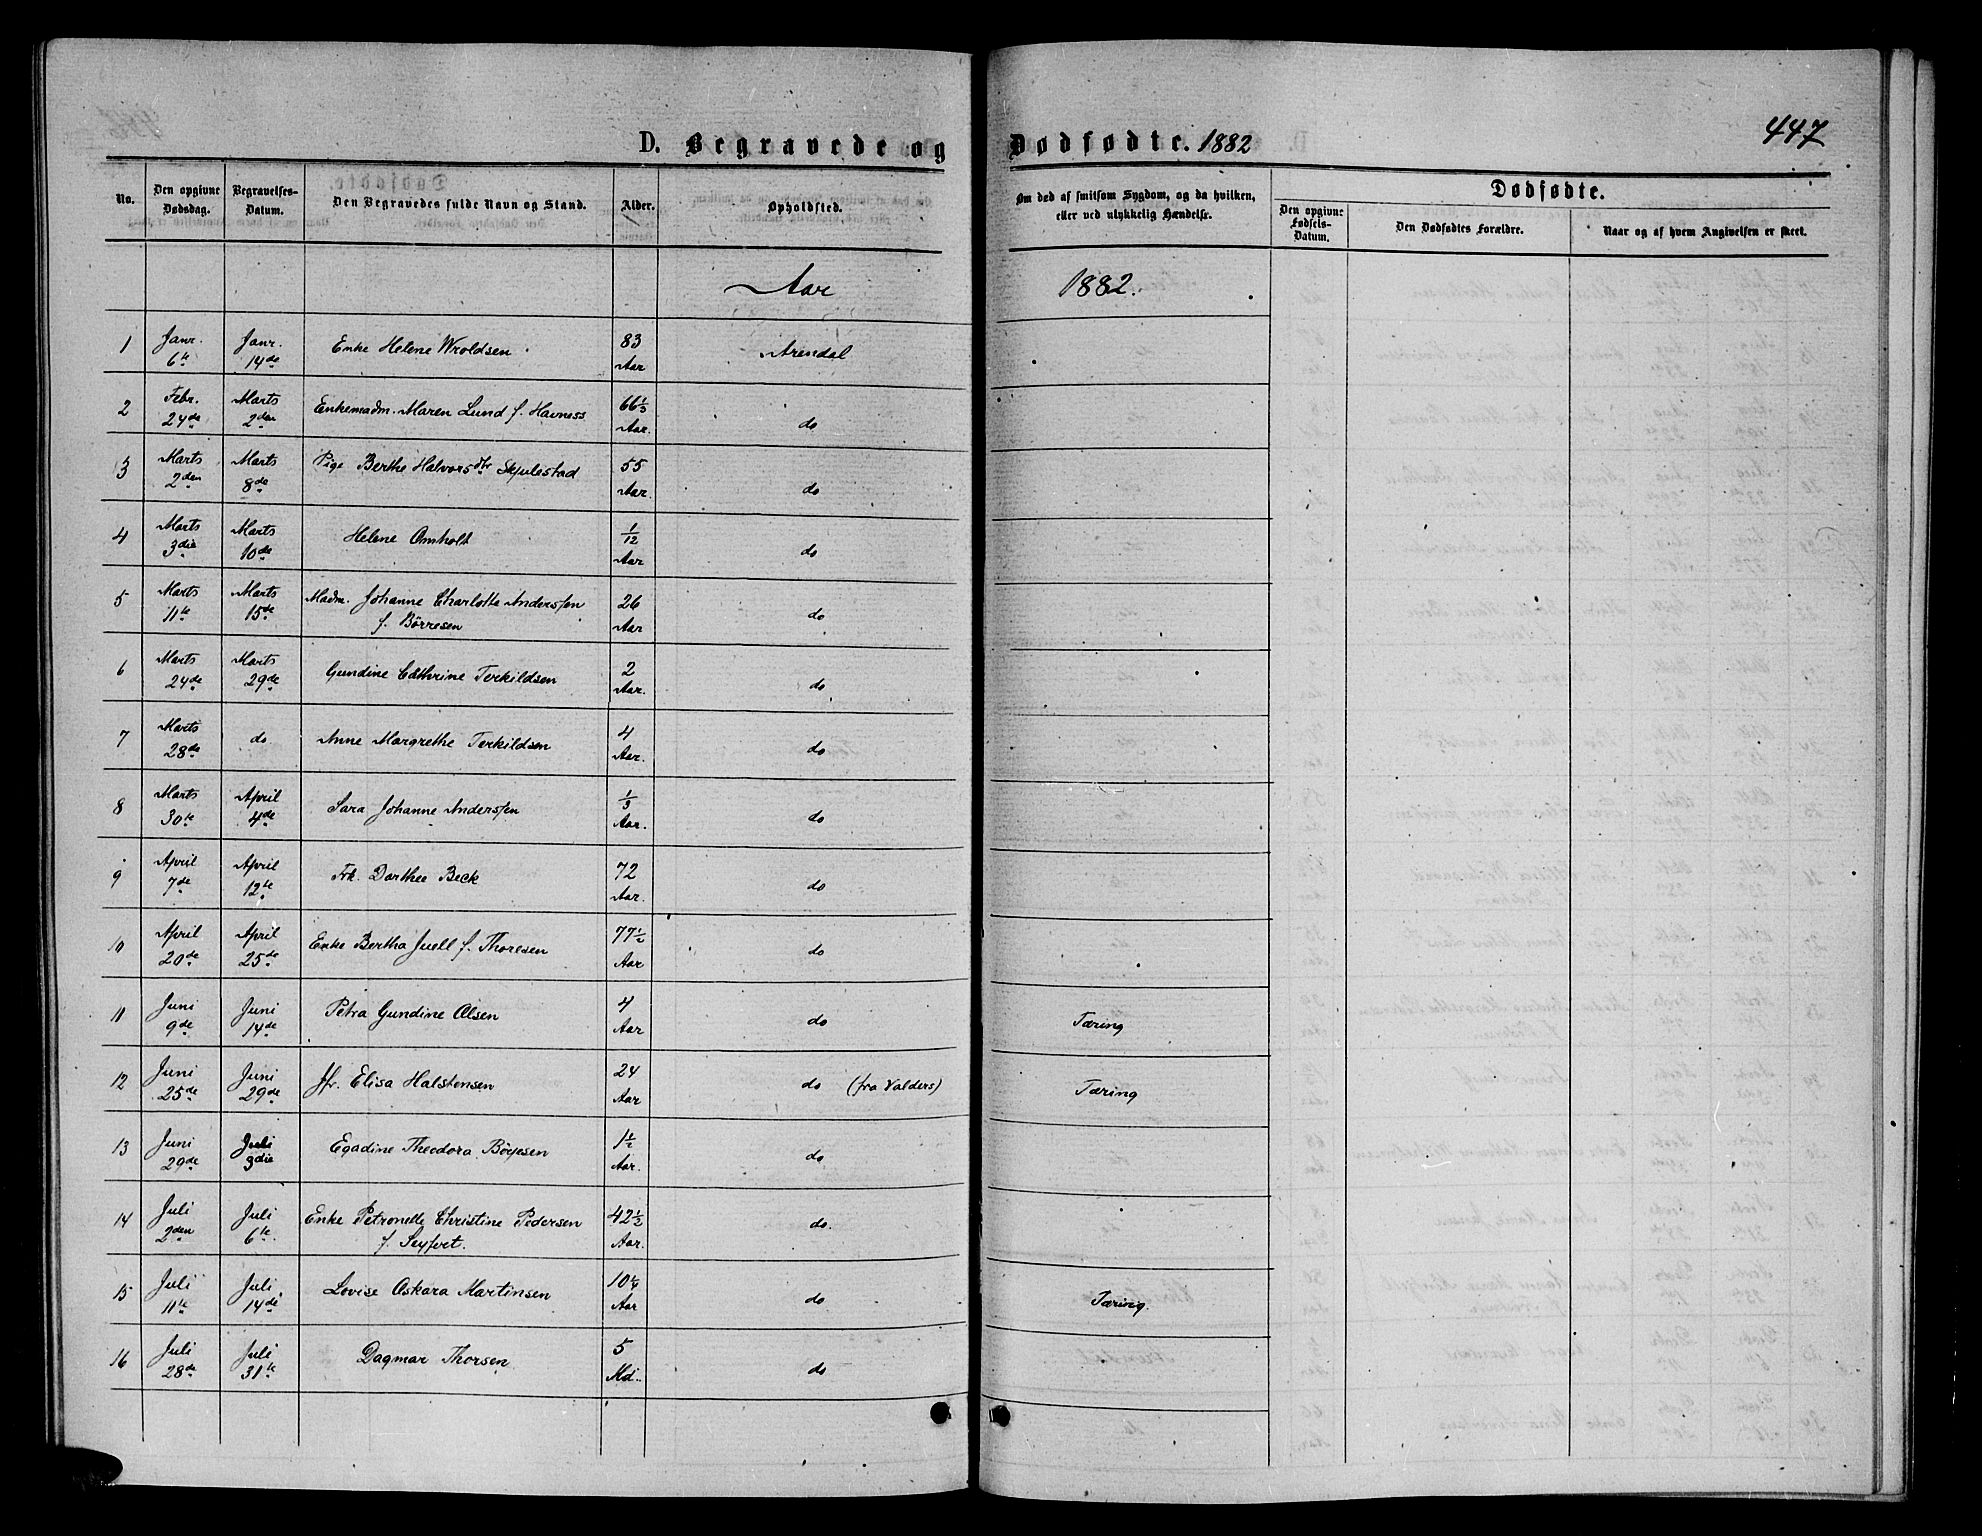 D. Begravede og Dødfødte. 1882
447
No.
Den opgivne Dødsdag.
Begravelses-Datum.
Den Begravedes fulde Navn og Stand.
Alder.
Opholdsted.
Om død af smitsom Sygdom, og da hvilken, eller ved ulykkelig Hændelse.
Dødfødte.
Den opgivne Fødsels-Datum.
Den Dødfødtes Forældre.
Naar og af hvem Angivelsen er skeet.
Aar 1882.
1 Janr. 6te Janr. 14de Enke Helene Wroldsen 83 Aar Arendal
2 Febr. 24de Marts 2den Enkemadm. Maren Lund f. Havness 66 1/3 Aar. do
3 Marts 2den Marts 8de Pige Berthe Halvorsdtr Skjulestad 55 Aar. do
4 Marts 3die Marts 10de Helene Omholt 1/12 Aar do
5 Marts 11te Marts 15de Madm. Johanne Charlotte Anderssen f. Börresen 26 Aar do
6 Marts 24de Marts 29de Gundine Cathrine Terkildsen 2 Aar. do
7 Marts 28de do Anne Margrethe Terkildsen 4 Aar. do
8 Marts 30te April 4de Sara Johanne Anderssen 1/3 Aar. do
9 April 7de April 12te Frk. Dorthee Beck 72 Aar. do
10 April 20de April 25de Enke Bertha Juell f. Thoresen 77 1/2 Aar do
11 Juni 9de Juni 14de Petra Gundine Olsen 4 Aar do Tæring
12 Juni 25de Juni 29de Jfr. Elisa Halstensen 24 Aar do (fra Valders) Tæring
13 Juni 29de Juli 3die Egadine Theodora 1 1/2 Aar. do
14 Juli 2den Juli 6te Enke Petronelle Christine Pedersen f. Seyfert. 42 1/2 Aar. do.
15 Juli 11te Juli 14de Lovise Oskara Martinsen 10 1/4 Aar do Tæring.
16 Juli 28de Juli 31te Dagmar Thorsen 5 Md. do